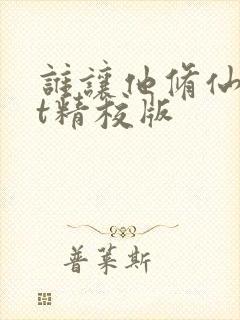 誰讓他脩仙
t精校版
普萊斯